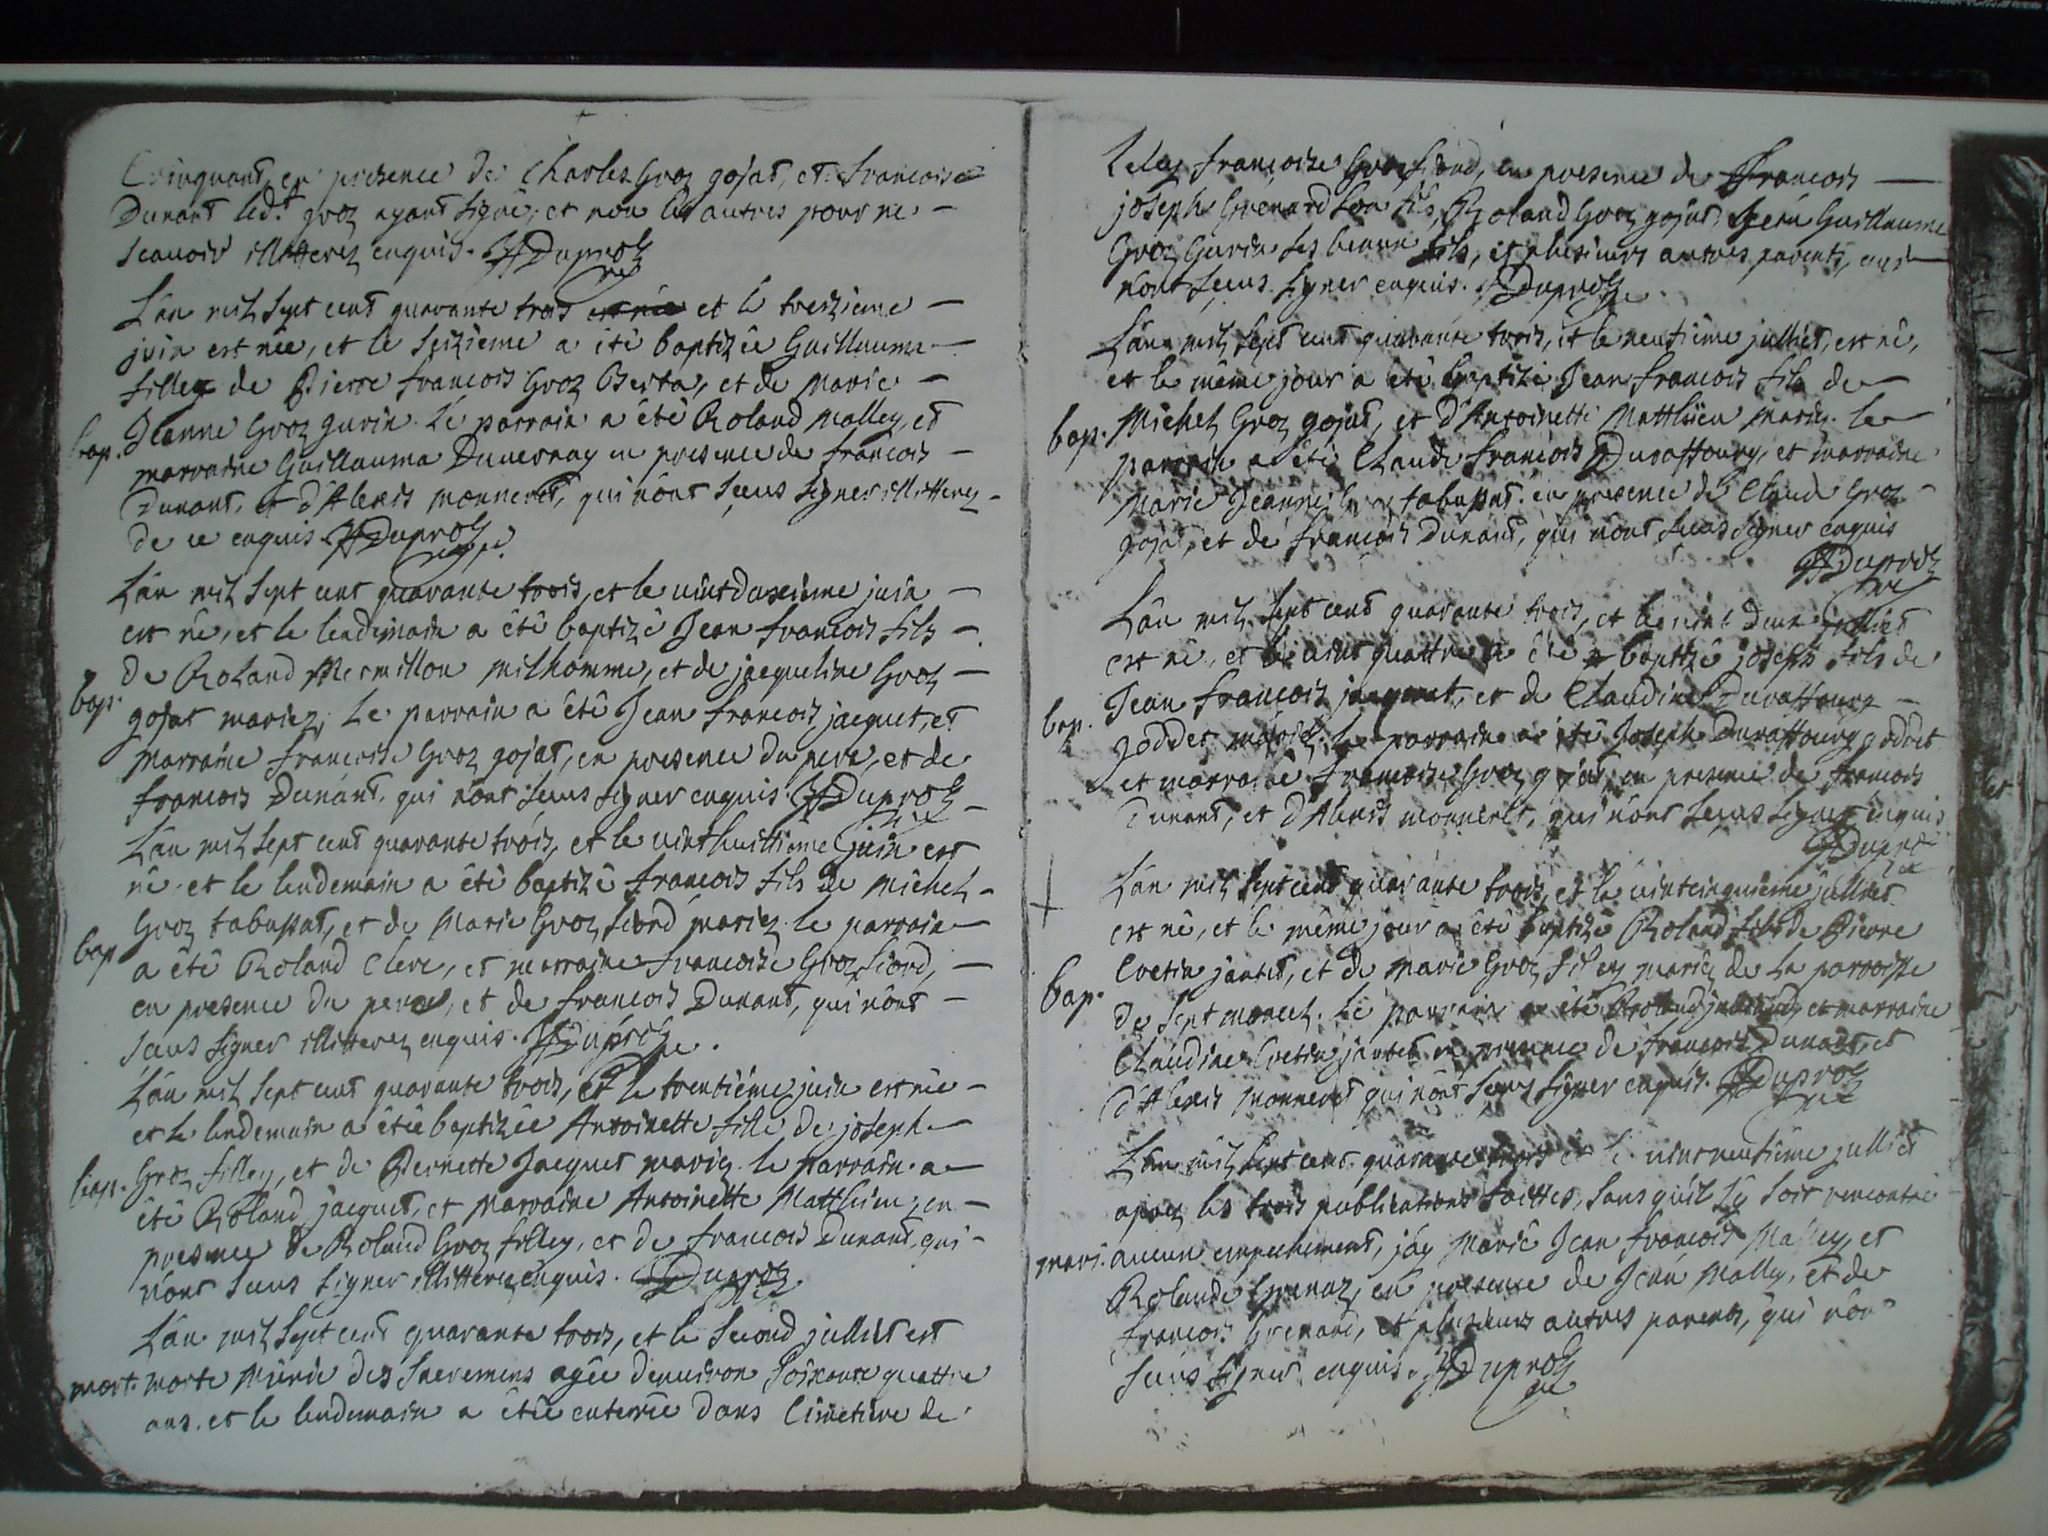 en presence de Charles Groz gojat, et francoise
Dunant led.t groz ayant signé, et non les autres pour ne
scavoir illitterez enquis. Duproz
L'an mil sept cent quarante trois et le treizieme
juin est née, et le seizieme a été baptizée Guillauma
filley de Pierre francois Groz Berta, et de Marie
bap. Jeanne Groz gurin. Le parrain a été Roland Malley, et
marraine Guillauma Duvernay en presence de francois
Dunant, et d'Alexis monneret, qui n'ont sçeus signer illitterez
de ce enquis. Duproz
L'an mil sept cent quarante trois, et le vint duxieme juin
est né, et le lendemain a été baptizé Jean francois fils
de Roland Mermillon milhomme, et de jacqueline Groz
bap. gojat mariez, Le parrain a été Jean francois jacquet, et
marraine francoise Groz gojat, en presence du pere, et de
francois Dunant, qui n'ont sceus signer enquis Duproz
L'an mil sept cent quarante trois, et le vint huittieme juin est
né et le lendemain a été baptizé francois fils de Michel
Groz tabussat, et de Marie Groz fiord mariez. le parrain
bap a été Roland Clerc, et marraine francoise Groz fiord,
en presence du pere, et de francois Dunant, qui n'ont
sceus signer illitterez enquis. Duproz
L'an mil sept cent quarante trois, et le trentiéme juin est née
et le lendemain a étée baptizée Antoinette fille de joseph
bap. Groz filley, et de Pernette Jacquet mariez. le parrain a
été Roland jacquet, et marraine Antoinette Matthieu, en
presence de Roland Groz filley, et de francois Dunant, qui
n'ont sceus signer illitterez enquis. Duproz
L'an mil sept cent quarante trois, et le second julliet est
mort. morte munie des sacremens agée d'environ soixante quattre
ans. et le lendemain a étée enterrée dans Cimetiere de
francoise Groz fiord, en presence de francois
joseph Grenard son fils, Roland Groz gojat, Jean Guillaume
Groz Gurin ses beaux fils, et plusieurs autres parents, qui
n'ont sçeus signer enquis. Duproz
L'an mil sept cent quarante trois, et le neutiéme julliet, est né,
et le même jour a été baptizé Jean francois fils de
bap. Michel Groz gojat, et d'Antoinette Matthieu mariez. le
parrain a été Claude francois Duraffourg, et marraine
Marie Jeanne Groz tabussat. en presence de Claude Groz
gojat, et de francois Dunant, qui n'ont sceus signer enquis
Duproz
L'an mil sept cent quarante trois, et le vint deux julliet
est né, et le vint quattre a été baptizé joseph fils de
Jean francois jacquet, et de Claudine Duraffourg
bap. goddet mariez. Le parrain a été Joseph Duraffourg goddet
et marraine francoise Groz gojat, en presence de francois
Dunant, et d'Alexis monneret, qui n'ont sceus signer enquis
Duproz
L'an mil sept cent quarante trois, et le vintcinquiéme julliet
est né, et le même jour a été baptizé Roland fils de Pierre
Cretin jantet, et de Marie Groz filley mariez de la parroisse
bap. de Septmoncel. Le parrain a été Roland et marraine
Claudine Cretin jantet en presence de francois Dunant, et
d'Alexis monneret qui n'ont sceus signer enquis. Duproz
L'an mil sept cent quarante trois et le vintneutiéme julliet
aprez les trois publications faittes, sans qu'il s'y soit rencontré
mari. aucun empechement, j'ay marié Jean francois Malley, et
Rolande Grenaz, en presence de Jean Malley, et de
francois Grenard, et plusieurs autres parents, qui n'ont
sceus signer enquis. Duproz